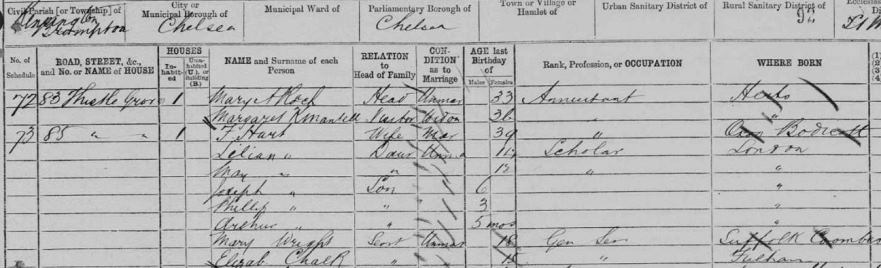 Civil Parish [or Township] of City or Municipal Borough of Municipal Ward of Parliamentary Borough of Town or Village or Hamlet of Urban Sanitary District of Rural Sanitary District of
Kensington Brompton Chelsea Chelsea 92
No. of Schedule ROAD, STREET, &c., and No. or NAME of HOUSE HOUSES Inhabited Uninhabited (U.), or Building (B.) NAME and Surname of each Person RELATION to Head of Family CONDITION as to Marriage AGE last Birthday of Males Females Rank, Profession, or OCCUPATION WHERE BORN
72 83 Thistle Grove 1 Mary A Head Unmar 33 Annuitant Herts
Margaret Visitor Widow 36 "
73 85 " " 1 F Hart Wife Mar 39 " Oxon
Lilian " Daur Unma Scholar London
May " " " "
Joseph " Son 6 "
Phillip " " 3 "
Arthur " " 5 mos "
Mary Wright Servt Unmar 18 Gen Ser Suffolk
Elizab Chalk " " Fulham